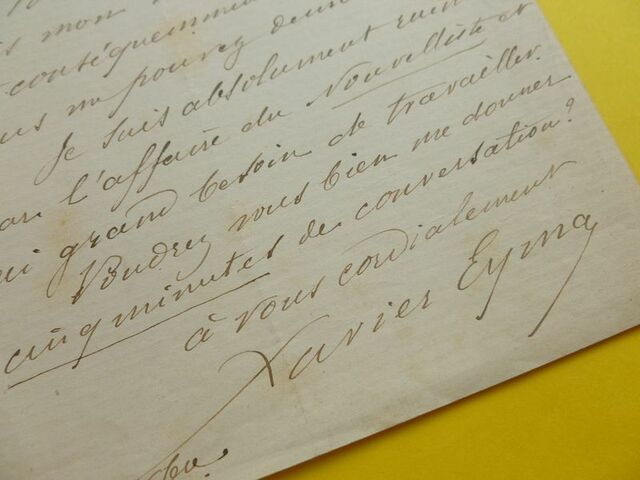 mon
conséquemment
me pouvez
Je suis absolument
l'affaire du Nouvelliste et
grand besoin de travailler.
Voudrez vous bien me donner
cinq minutes de conversation?
à vous cordialement
Xavier Eyma